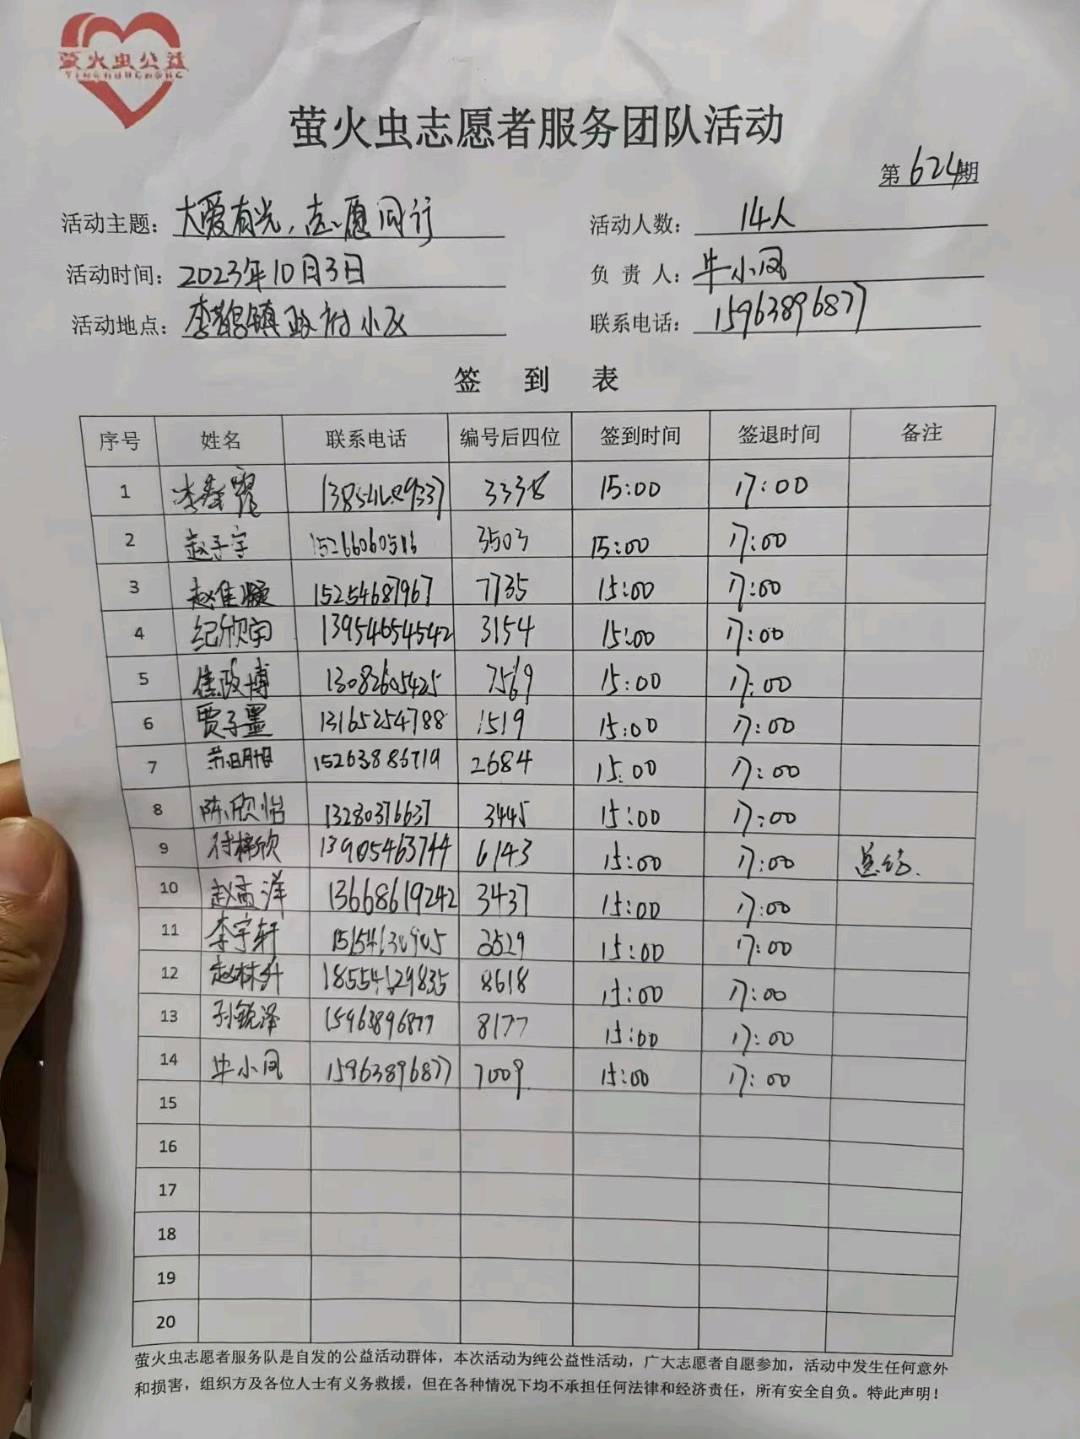 萤火虫公益
YINGHUOCHONG
萤火虫志愿者服务团队活动
第624期
活动主题: 大爱有光,志愿同行 活动人数: 14人
活动时间: 2023年10月3日 负责人: 牛小凤
活动地点: 李鹊镇政府小区 联系电话: 15963896877
签到表
序号 姓名 联系电话 编号后四位 签到时间 签退时间 备注
1 333 15:00 17:00
2 赵子宇 15266060516 3503 15:00 17:00
3 赵佳凝 15254687967 7735 15:00 17:00
4 纪欣宇 13954654542 3154 15:00 17:00
5 政博 13082605425 7569 15:00 17:00
6 贾子墨 13165254788 1519 15:00 17:00
7 15263886719 2684 15:00 17:00
8 陈欣怡 13280376637 3445 15:00 17:00
9 付梓欣 13905463744 6143 15:00 17:00 总结.
10 赵高洋 13668619242 3437 15:00 17:00
11 李宇轩 15:00 17:00
12 赵林升 18554129835 8618 15:00 17:00
13 孙锐泽 15963896877 8177 15:00 17:00
14 牛小凤 15963896877 7009 15:00 17:00
15
16
17
18
19
20
萤火虫志愿者服务队是自发的公益活动群体，本次活动为纯公益性活动，广大志愿者自愿参加，活动中发生任何意外
和损害，组织方及各位人士有义务救援，但在各种情况下均不承担任何法律和经济责任，所有安全自负。特此声明！